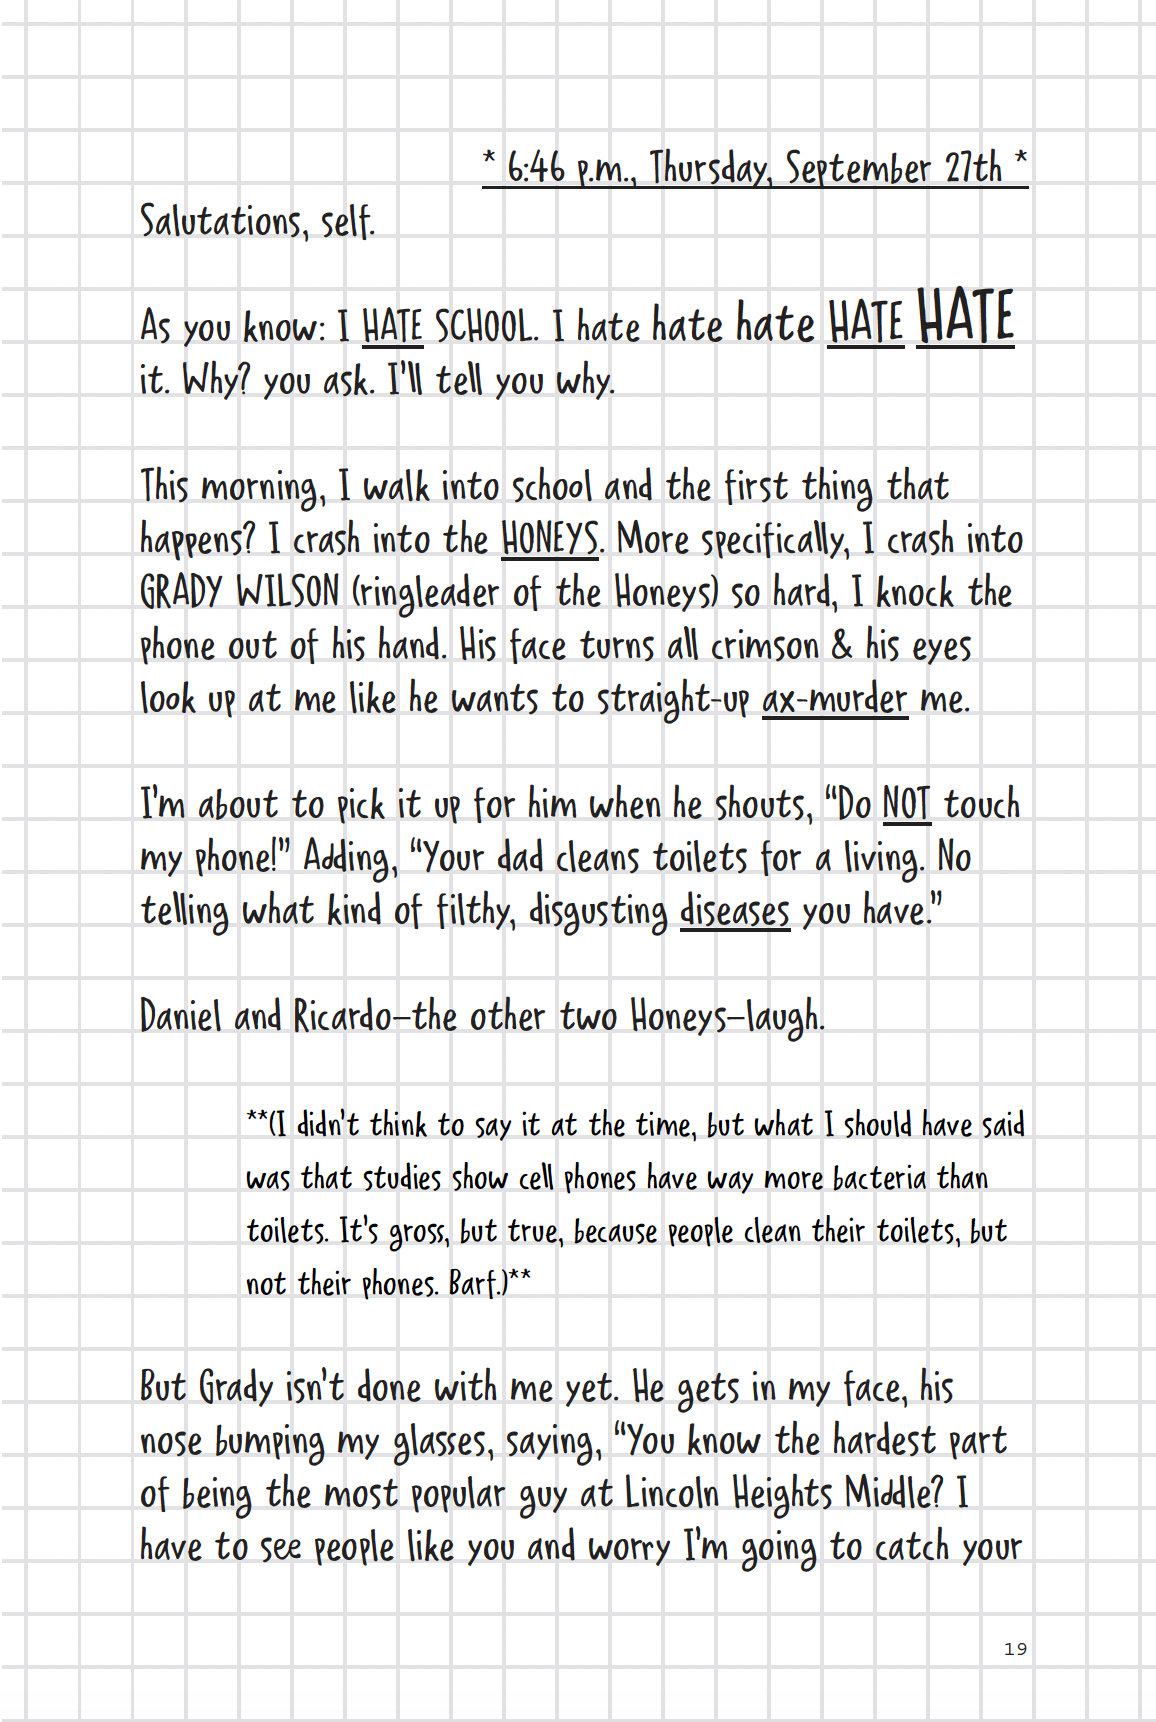 * 6:46 p.m., Thursday, September 27th *
Salutations, self.
As you know: I HATE SCHOOL. I hate hate hate HATE HATE
it. Why? you ask. I'll tell you why.
This morning, I walk into school and the first thing that
happens? I crash into the HONEYS. More specifically, I crash into
GRADY WILSON (ringleader of the Honeys) so hard, I knock the
phone out of his hand. His face turns all crimson & his eyes
look up at me like he wants to straight-up ax-murder me.
I'm about to pick it up for him when he shouts, “Do NOT touch
my phone!” Adding, “Your dad cleans toilets for a living. No
telling what kind of filthy, disgusting diseases you have.”
Daniel and Ricardo—the other two Honeys—laugh.
**(I didn't think to say it at the time, but what I should have said
was that studies show cell phones have way more bacteria than
toilets. It's gross, but true, because people clean their toilets, but
not their phones. Barf.)**
But Grady isn't done with me yet. He gets in my face, his
nose bumping my glasses, saying, “You know the hardest part
of being the most popular guy at Lincoln Heights Middle? I
have to see people like you and worry I'm going to catch your
19